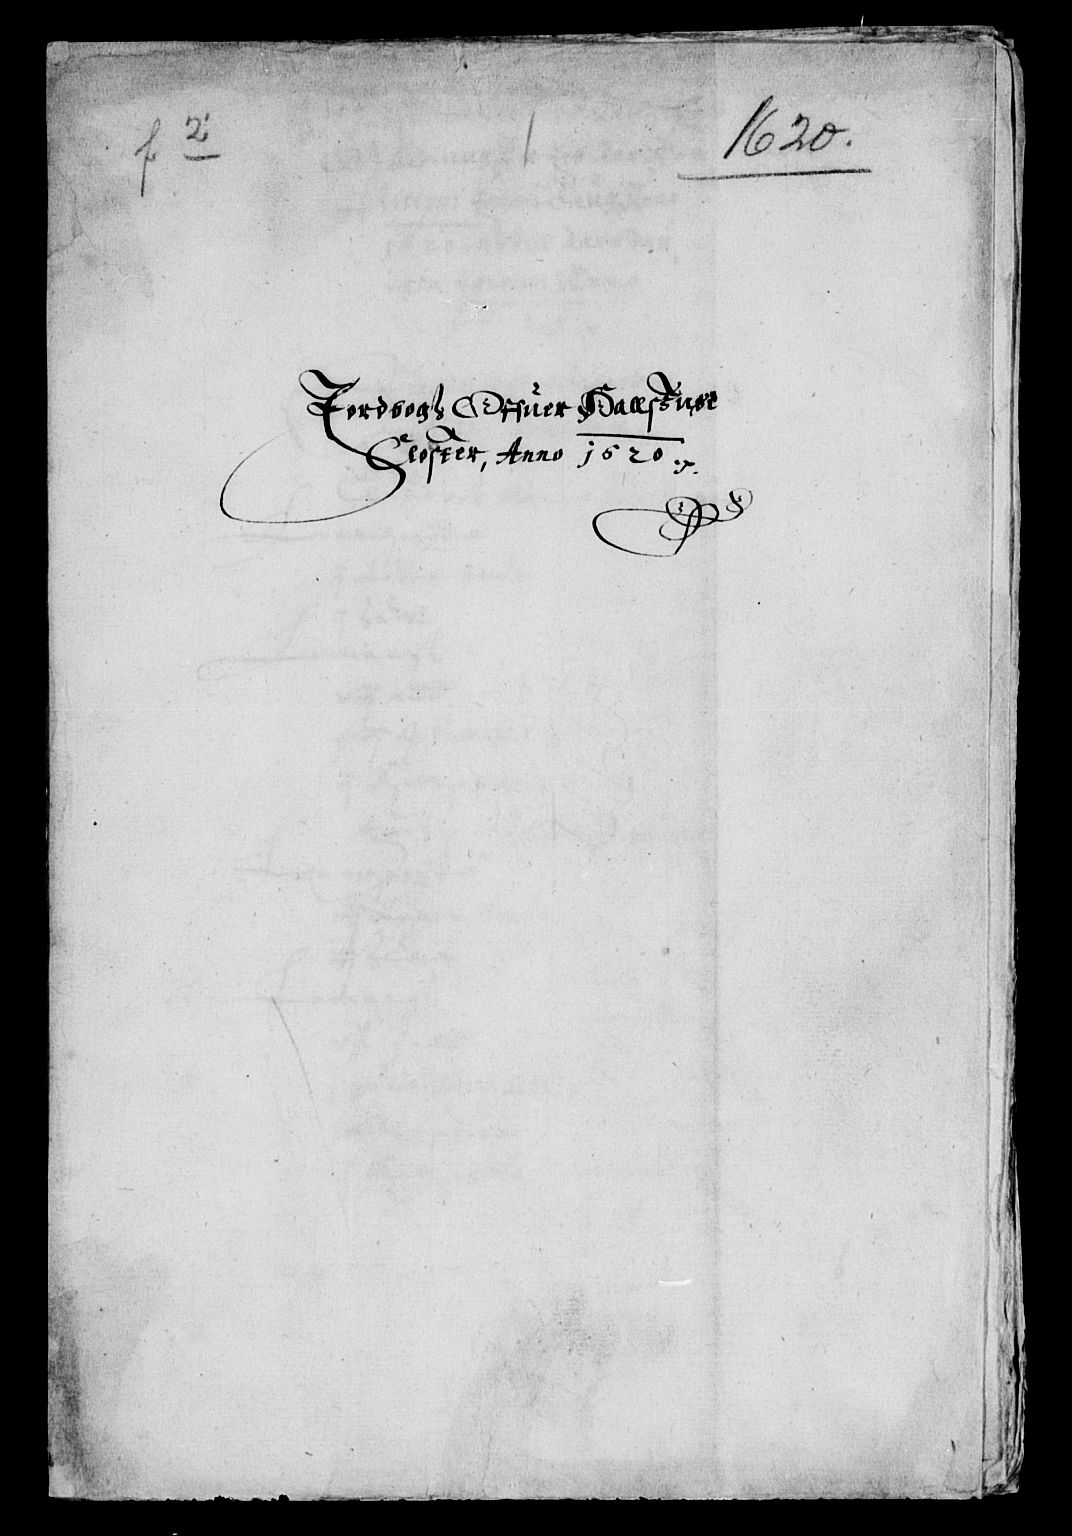 f 2 1 1620.
Jordbog Offuer Halssnøe
Closter, Anno 1620